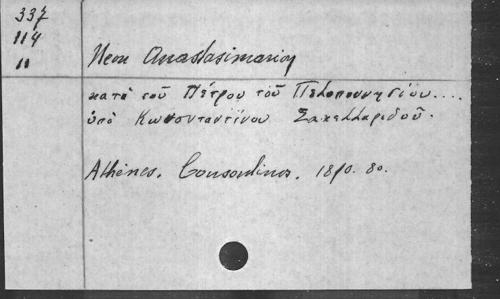 337
114
11
Neon Anastasimarion
κατὰ τοῦ Πέτρου τοῦ Πελοποννησίου....
ὑπὸ Κωνσταντίνου Σακελλαριδοῦ.
Athènes. 1890. 80.